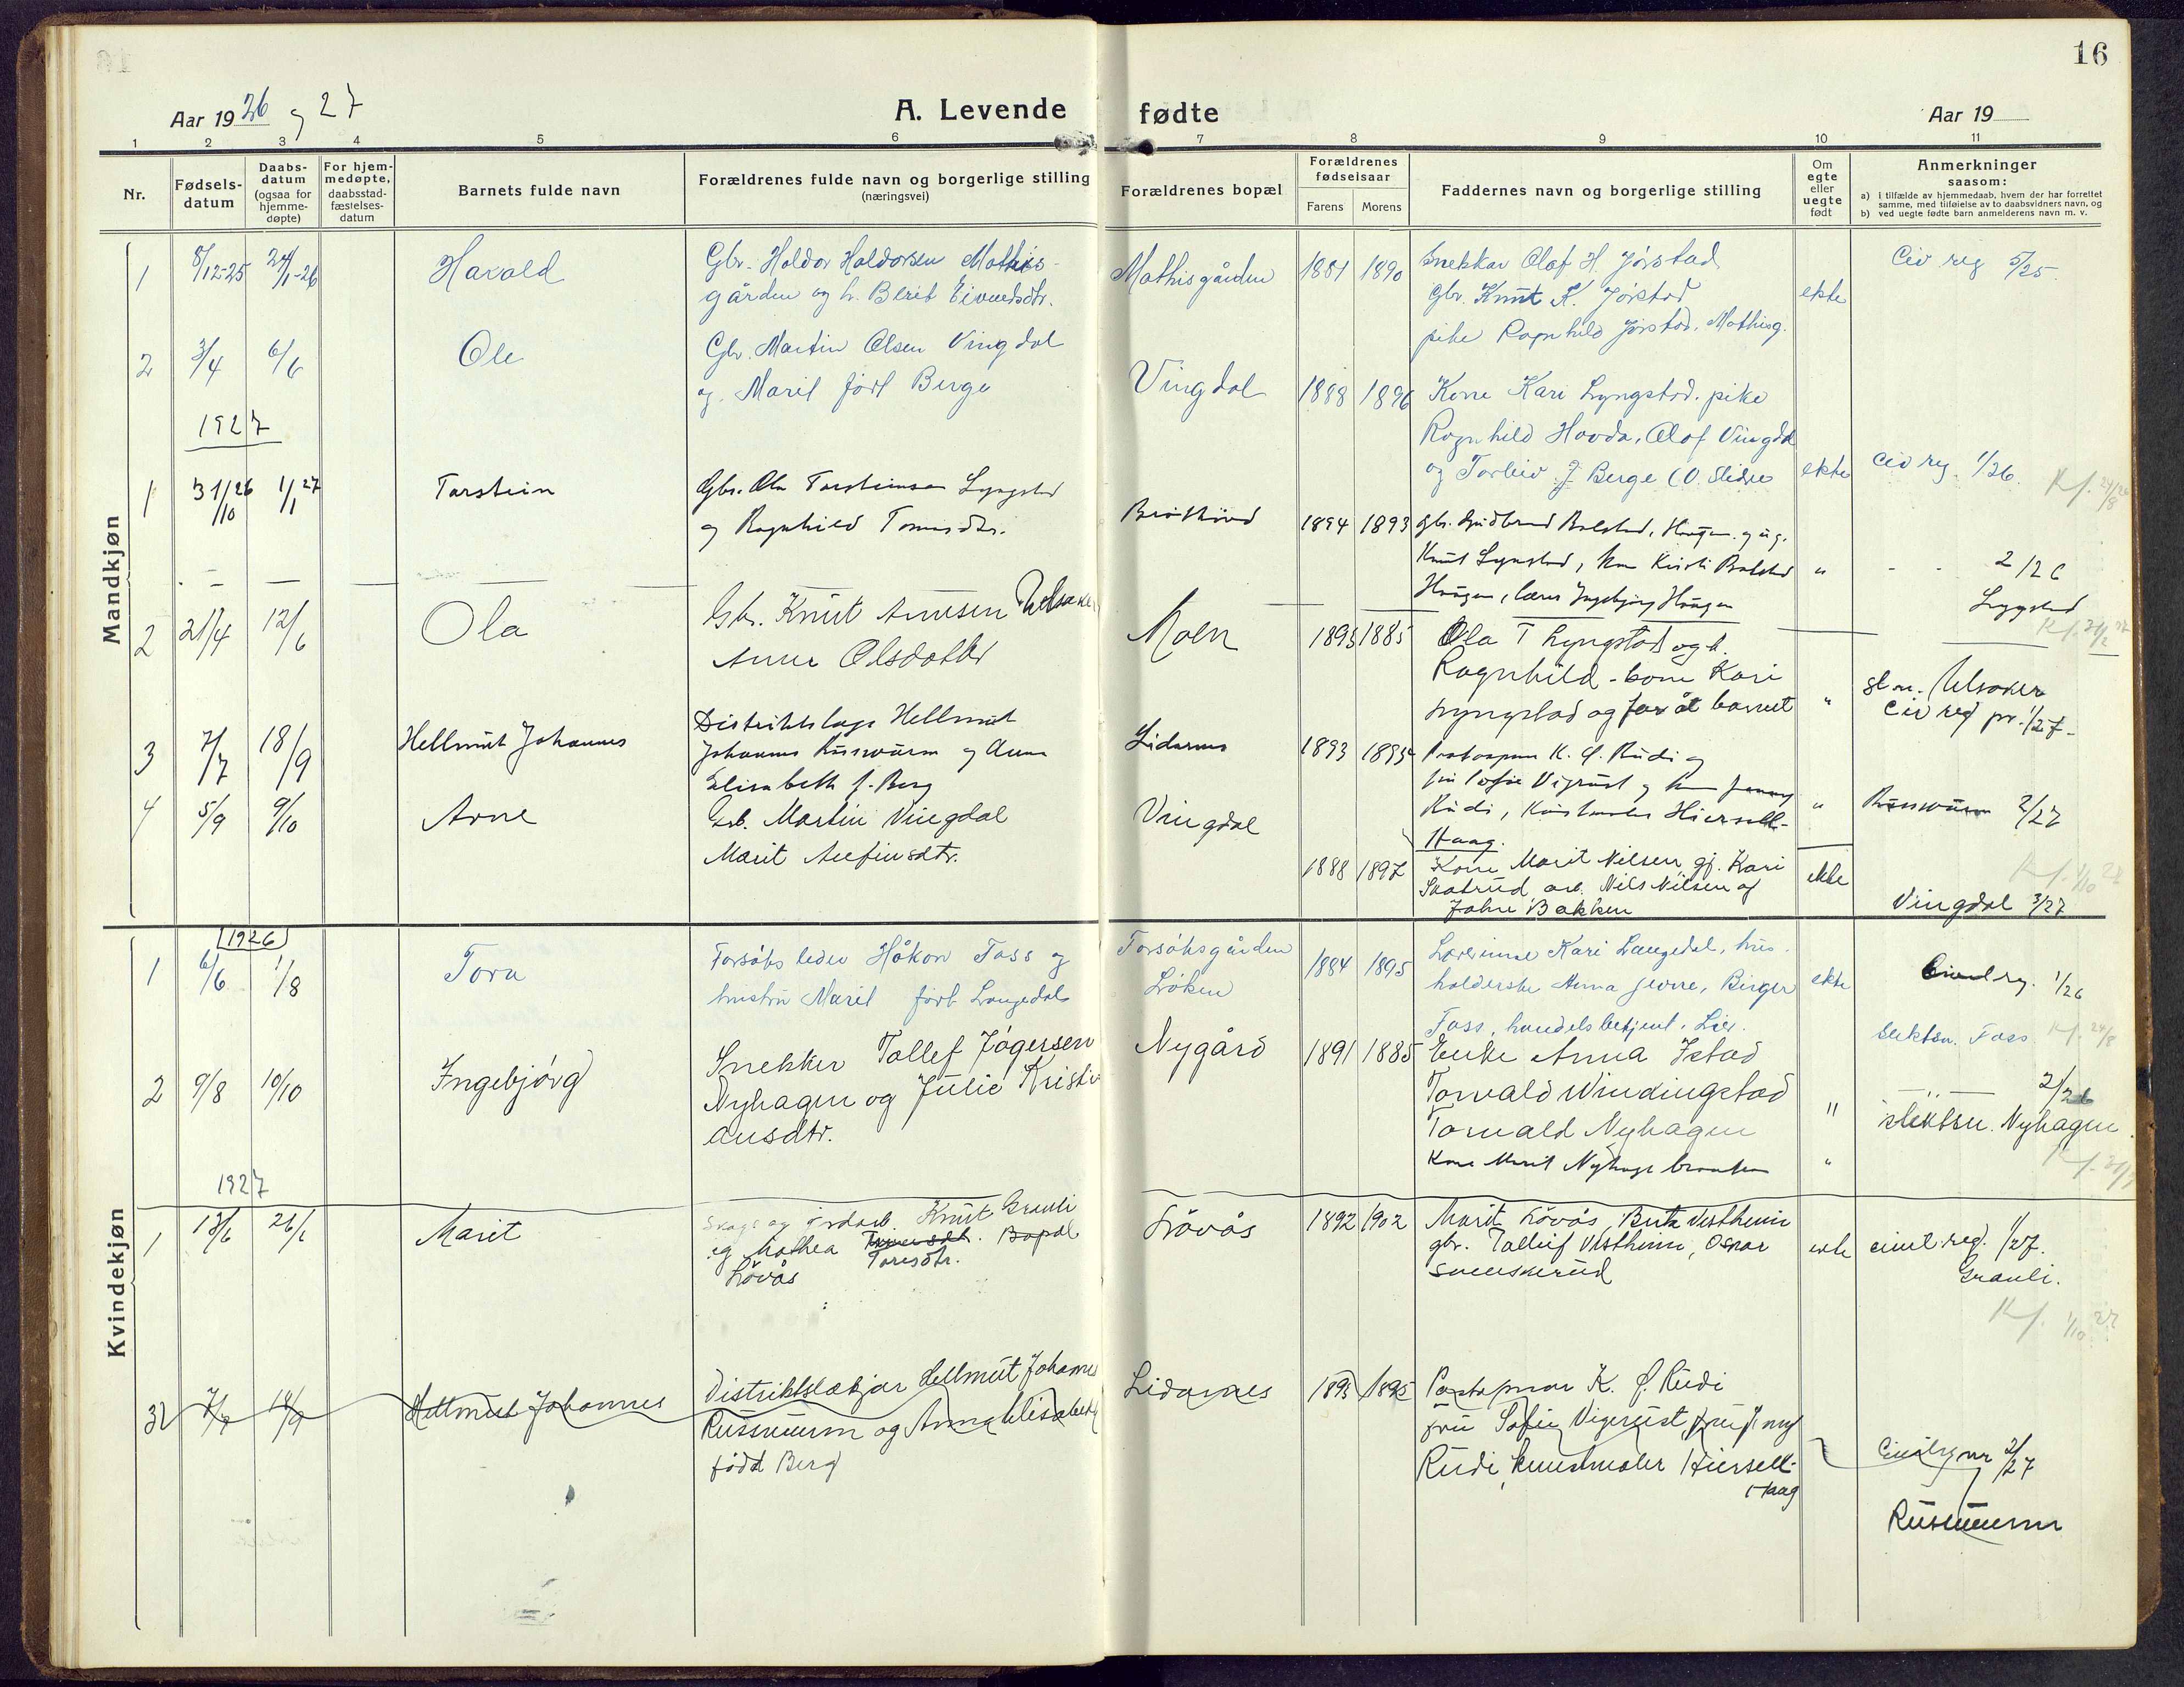 16
Aar 1926 og 27
A. Levende fødte
Aar 19
1 2 3 4 5 6 7 8 9 10 11
Nr.
Fødsels-
datum
Daabs-
datum
(ogsaa for
hjemme-
døpte)
For hjem-
medøpte,
daabsstad-
fæstelses-
datum
Barnets fulde navn
Forældrenes fulde navn og borgerlige stilling
(næringsvei)
Forældrenes bopæl
Forældrenes
fødselsaar
Farens
Morens
Faddernes navn og borgerlige stilling
Om
egte
eller
uegte
født
Anmerkninger
saasom:
a) i tilfælde av hjemmedaab, hvem der har forrettet
samme, med tilføielse av to daabsvidners navn, og
b) ved uegte fødte barn anmelderens navn m. v.
Mandkjøn
1
8/12-25
24/1-26
Harald
Gbr. Haldor Haldorsen Mathis-
gården og h. Berit Eivindsdtr.
Mathisgården
1881
1890
Snekker Olaf H. Jørstad
Gbr. Knut K. Jørstad
pike Ragnhild Jørstad, Mathisg.
ekte
Civ reg 5/25.
2
3/4
6/6
Ole
Gbr. Martin Olsen Vingdal
og Marit født Berge
Vingdal
1888
1896
Kone Kari Lyngstad. pike
Ragnhild Hovda, Olaf Vingdal
og Torleiv J. Berge (V. Slidre
ekte
Civ reg. 1/26.
1927
1
31/10 26
1/1 27
Torstein
Gbr. Ola Torsteinsen Lyngstad
og Ragnhild Tomasdtr.
1894
1893
Gbr. Gudbrand Bolstad, Haugen og ug.
Knut Lyngstad, kone Kristi Bolstad
Haugen, lærer Ingebjørg Haugen
"
2/26
Lyngstad
2
21/4
12/6
Ola
Gbr. Knut Arnesen Ulsaker
Anne Olsdotter
Moen
1893
1885
Ola T Lyngstad og h.
Ragnhild - kone Kari
Lyngstad og far åt barnet
"
sl.n. Ulsaker
Civ reg nr. 1/27.
3
7/7
18/9
Hellmut Johannes
Distriktslæge Hellmut
Johannes Russwurm og Anna
Elisabeth f. Berg
Lidarnes
1893
1895
K. J. Rudi og
fru Sofie Vigerust og fru Jenny
Rudi, Kunstmaler Hiersell-
Haag.
"
Russwurm 2/27
4
5/9
9/10
Arne
Martin Vingdal
Marit Arefinsdtr.
Vingdal
1888
1897
Kone Marit Nilsen gj. Kari
Skatrud, arb. Nils Nilsen og
Johne Bakken
ekte
Vingdal 3/27
Kvindekjøn
1926
1
6/6
1/8
Tora
Forsøksleder Håkon Foss og
hustru Marit født Langedal
Forsøksgården
Løken
1884
1895
Lærerinne Kari Langedal, hus-
holderske Anna Jevne, Birger
Foss, handelsbetjent, Lier.
ekte
Civil reg. 1/26
Slektsn. Foss
2
9/8
10/10
Ingebjörg
Snekker Tollef Jögersen
Nyhagen og Julie Kristi-
ansdtr.
Nygård
1891
1885
Enke Anna Istad
Torvald Windingstad
Torvald Nyhagen
Kone Marit Nyhagen
"
2/26
slektsn. Nyhagen
1927
1
26/6
Marit
Skogs og jordarb. Knut Granli
og Mathea Toresdtr. Bopæl
Lövås
Lövås
1892
1902
Marit Lövås, Berta Vestheim
gbr. Tolleif Vestheim, Oskar
Svenskerud
ekte
civil.reg. 1/27.
Granli.
7/7
18/9
Hellmut Johannes
Distriktslækjar Hellmut Johannes
Russwurm og Anna Elisabeth
född Berg
Lidarnes
1893
1895
K. J. Rudi
fru Sofie Vigerust, fru Jenny
Rudi, kunstmaler Hiersell-
Haag
Civilreg nr 2/27
Russwurm